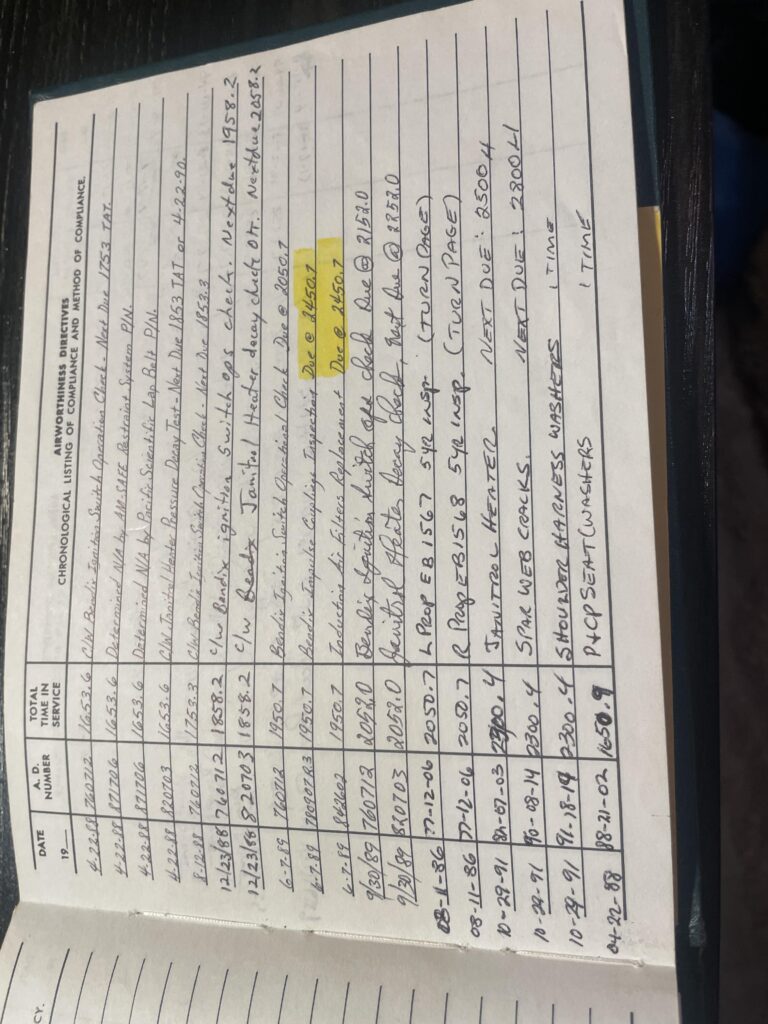 CY.
AIRWORTHINESS DIRECTIVES
CHRONOLOGICAL LISTING OF COMPLIANCE AND METHOD OF COMPLIANCE.
DATE 19— A. D. NUMBER TOTAL TIME IN SERVICE
4-22-88 760712 1653.6 C/W Bendix Ignition Switch Operation Check - Next Due 1753 TAT.
4-22-88 871706 1653.6 Determined N/A by AM-SAFE Restraint System P/N.
4-22-88 871706 1653.6 Determined N/A by Pacific Scientific Lap Belt P/N.
4-22-88 820703 1653.6 C/W Janitrol Heater Pressure Decay Test - Next Due 1853 TAT or 4-22-90.
8-12-88 760712 1753.3 C/W Bendix Ignition Switch Operation Check - Next Due 1853.3
12/23/88 760712 1858.2 C/W Bendix ignition switch ops check. Next due 1958.2
12/23/88 820703 1858.2 C/W Janitrol Heater decay check OTT. Next due 2058.2
6-7-89 760712 1950.7 Bendix Ignition Switch Operational Check Due @ 2050.7
6-7-89 780907R3 1950.7 Bendix Impulse Couplings Inspection Due @ 2450.7
6-7-89 842602 1950.7 Induction Air Filters Replacement Due @ 2450.7
9/30/89 760712 2052.0 Bendix Ignition Switch ops check Due @ 2152.0
9/30/89 820703 2052.0 Janitrol Heater Decay Check, Next Due @ 2252.0
08-11-86 77-12-06 2050.7 L PROP EB1567 5YR INSP. (TURN PAGE)
08-11-86 77-12-06 2050.7 R PROP EB1568 5YR INSP. (TURN PAGE)
10-29-91 82-07-03 2300.4 JANITROL HEATER. NEXT DUE: 2500.4
10-29-91 90-08-14 2300.4 SPAR WEB CRACKS. NEXT DUE: 2800.4
10-29-91 91-18-19 2300.4 SHOULDER HARNESS WASHERS 1 TIME
04-22-88 88-21-02 1650.9 P+CP SEAT (WASHERS 1 TIME